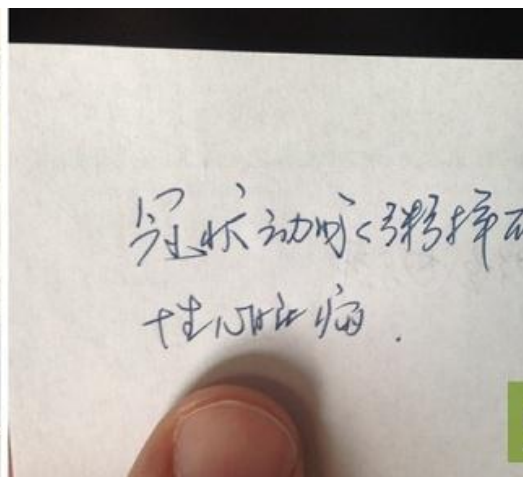 冠状动脉粥样硬
性心脏病.